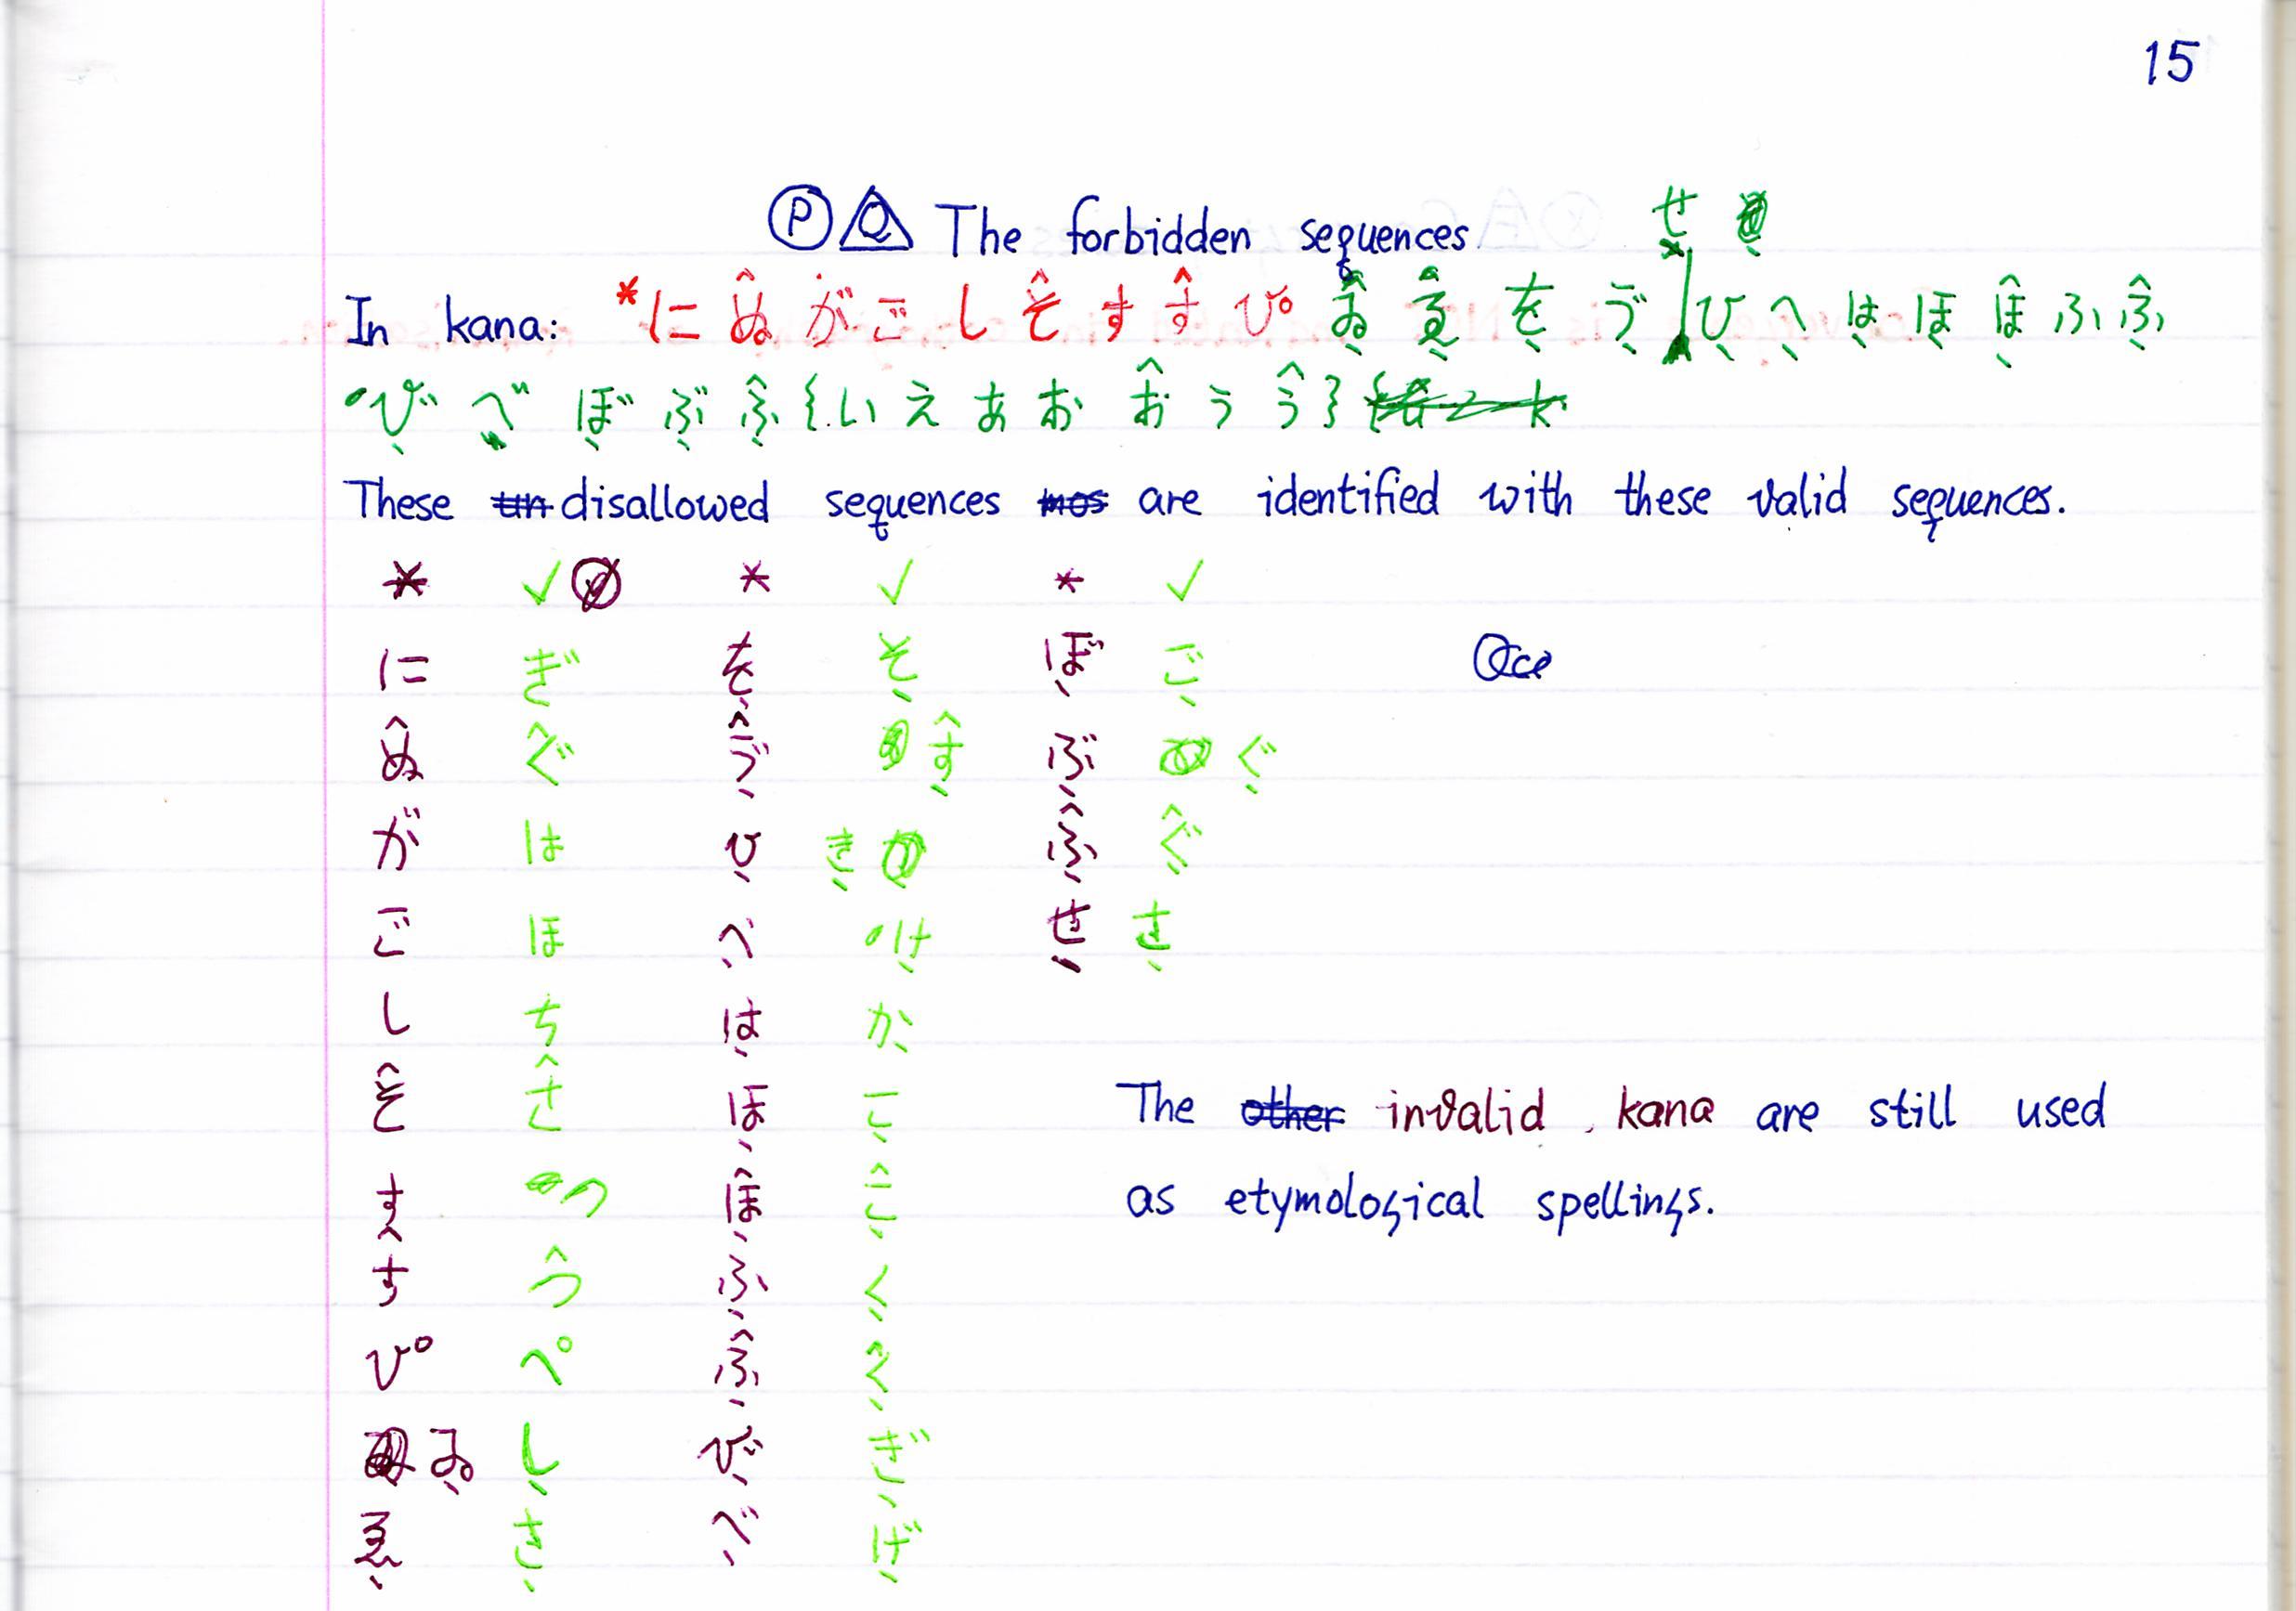 15
Ⓟ Q The forbidden sequences せ、
In kana: *に ぬ̂ が ご し そ̂ す す̂ ぴ ゐ、 ゑ、 を、 ゔ、 ひ、 へ、 は、 ほ、 ほ̂、 ふ、 ふ̂、
び、 べ、 ぼ、 ぶ、 ぶ̂、 {い え あ お お̂ う う̂}
These un disallowed sequences mos are identified with these valid sequences.
* ✓ * ✓ * ✓
に ぎ を、 そ、 ぼ、 ご、
ぬ̂ ぐ̂ ゔ̂、 す̂、 ぶ、 ぐ、
が は ひ、 き、 ふ̂、 ぐ̂、
ご ほ へ、 け、 せ、 さ、
し ち は、 か、
そ̂ さ̂ ほ、 こ、 The other invalid kana are still used
す つ ほ̂、 こ̂、 as etymological spellings.
す̂ つ̂ ふ、 く、
ぴ ぺ ふ̂、 く̂、
ゐ、 し、 び、 ぎ、
ゑ、 さ、 べ、 げ、